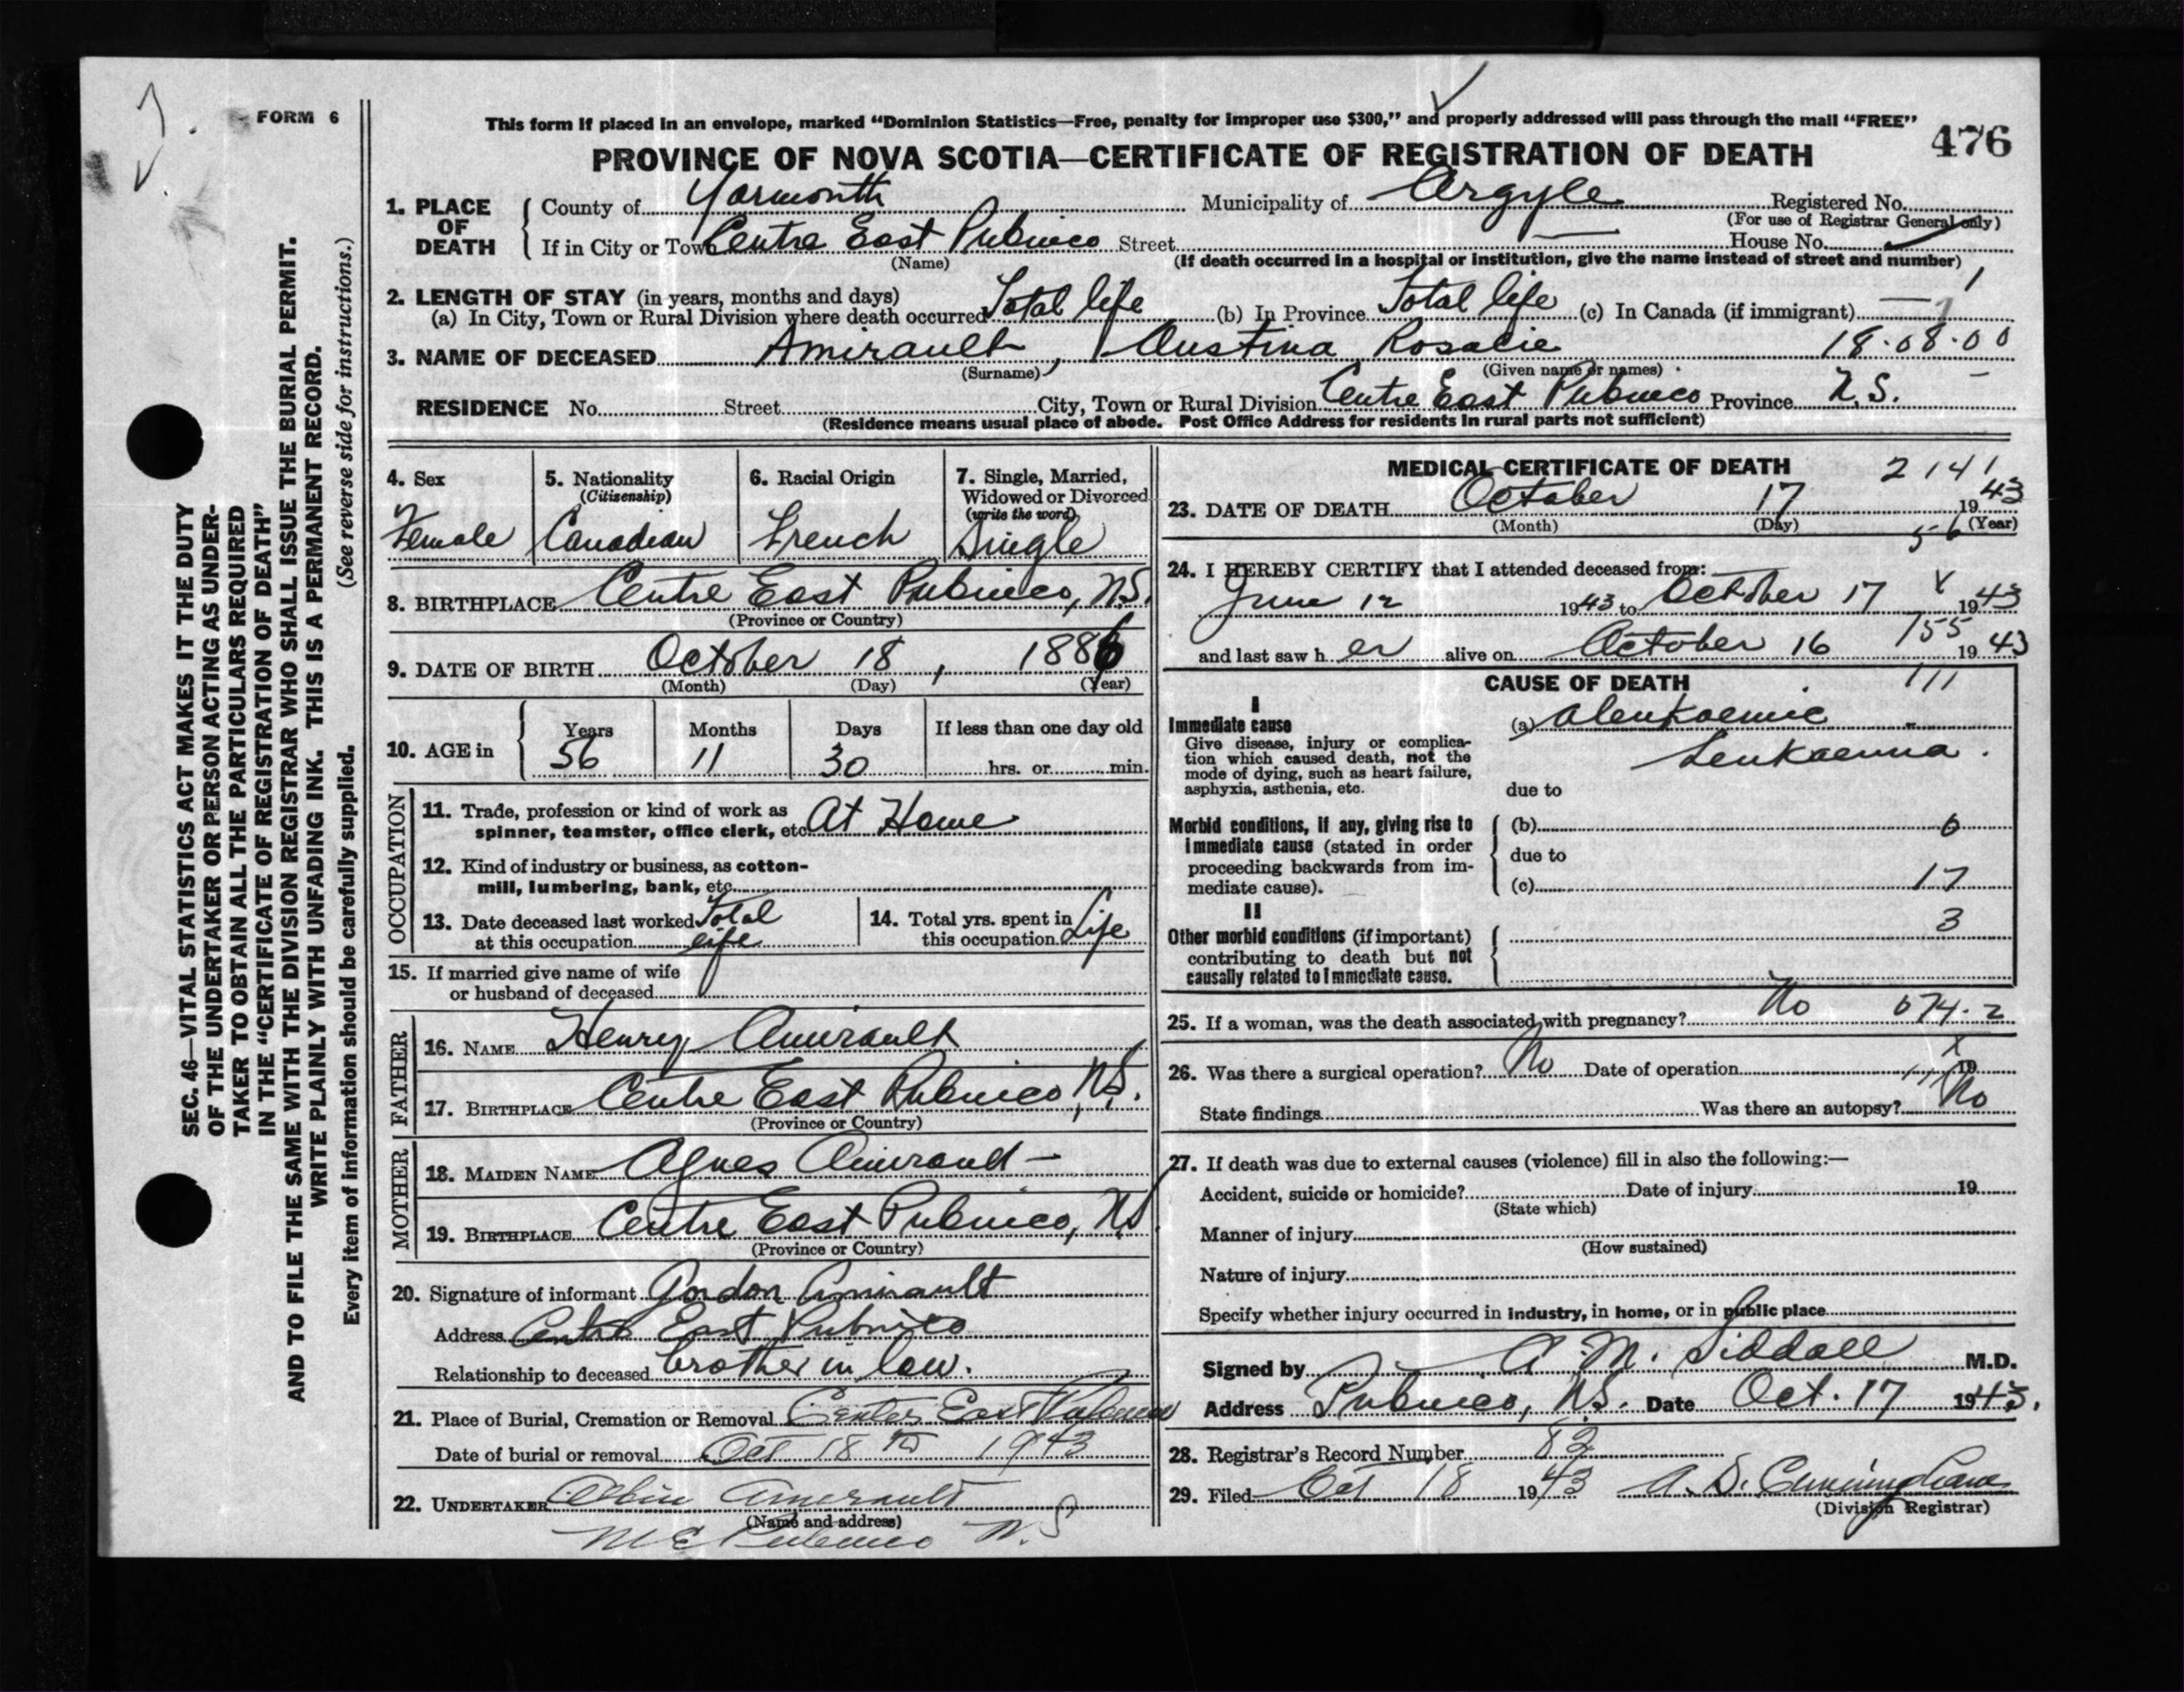 FORM 6
This form if placed in an envelope, marked “Dominion Statistics—Free, penalty for improper use $300,” and properly addressed will pass through the mail “FREE”
476
PROVINCE OF NOVA SCOTIA—CERTIFICATE OF REGISTRATION OF DEATH
1. PLACE OF DEATH
County of Yarmouth Municipality of Argyle Registered No.
(For use of Registrar General only)
If in City or Town Centre East Pubnico Street House No.
(Name) (If death occurred in a hospital or institution, give the name instead of street and number)
2. LENGTH OF STAY (in years, months and days)
(a) In City, Town or Rural Division where death occurred Total life (b) In Province Total life (c) In Canada (if immigrant)
3. NAME OF DECEASED Amirault, Austina Rosalie 18.08.00
(Surname) (Given name or names)
RESIDENCE No. Street City, Town or Rural Division Centre East Pubnico Province N.S.
(Residence means usual place of abode. Post Office Address for residents in rural parts not sufficient)
4. Sex
Female
5. Nationality
(Citizenship)
Canadian
6. Racial Origin
French
7. Single, Married,
Widowed or Divorced
(write the word)
Single
8. BIRTHPLACE Centre East Pubnico, N.S.
(Province or Country)
9. DATE OF BIRTH October 18, 1886
(Month) (Day) (Year)
10. AGE in
Years Months Days If less than one day old
56 11 30 hrs. or min.
OCCUPATION
11. Trade, profession or kind of work as
spinner, teamster, office clerk, etc. At Home
12. Kind of industry or business, as cotton-
mill, lumbering, bank, etc.
13. Date deceased last worked Total
at this occupation life
14. Total yrs. spent in
this occupation Life
15. If married give name of wife
or husband of deceased
FATHER
16. NAME Henry Amirault
17. BIRTHPLACE Centre East Pubnico, N.S.
(Province or Country)
MOTHER
18. MAIDEN NAME Agnes Amirault
19. BIRTHPLACE Centre East Pubnico, N.S.
(Province or Country)
20. Signature of informant Gordon Amirault
Address Centre East Pubnico
Relationship to deceased brother in law.
21. Place of Burial, Cremation or Removal Center East Pubnico
Date of burial or removal Oct 18th 1943
22. UNDERTAKER Amerault
(Name and address)
Pubnico N.S
MEDICAL CERTIFICATE OF DEATH 2141
23. DATE OF DEATH October 17 1943
(Month) (Day) (Year)
56
24. I HEREBY CERTIFY that I attended deceased from:
June 12 1943 to October 17 1943
155
and last saw her alive on October 16 1943
CAUSE OF DEATH
111
I
Immediate cause
Give disease, injury or complica-
tion which caused death, not the
mode of dying, such as heart failure,
asphyxia, asthenia, etc.
(a) Aleukaemic
Leukaemia.
due to
Morbid conditions, if any, giving rise to
immediate cause (stated in order
proceeding backwards from im-
mediate cause).
(b) 6
due to
(c) 17
II
Other morbid conditions (if important)
contributing to death but not
causally related to immediate cause.
3
25. If a woman, was the death associated with pregnancy? No 074.2
26. Was there a surgical operation? No Date of operation 19
State findings Was there an autopsy? No
27. If death was due to external causes (violence) fill in also the following:—
Accident, suicide or homicide? Date of injury 19
(State which)
Manner of injury
(How sustained)
Nature of injury
Specify whether injury occurred in industry, in home, or in public place
Signed by A. M. Siddall M.D.
Address Pubnico, N.S. Date Oct. 17 1943.
28. Registrar's Record Number 82
29. Filed Oct 18 1943 A. D. Cunningham
(Division Registrar)
SEC. 46—VITAL STATISTICS ACT MAKES IT THE DUTY
OF THE UNDERTAKER OR PERSON ACTING AS UNDER-
TAKER TO OBTAIN ALL THE PARTICULARS REQUIRED
IN THE “CERTIFICATE OF REGISTRATION OF DEATH”
AND TO FILE THE SAME WITH THE DIVISION REGISTRAR WHO SHALL ISSUE THE BURIAL PERMIT.
WRITE PLAINLY WITH UNFADING INK. THIS IS A PERMANENT RECORD.
Every item of information should be carefully supplied. (See reverse side for instructions.)